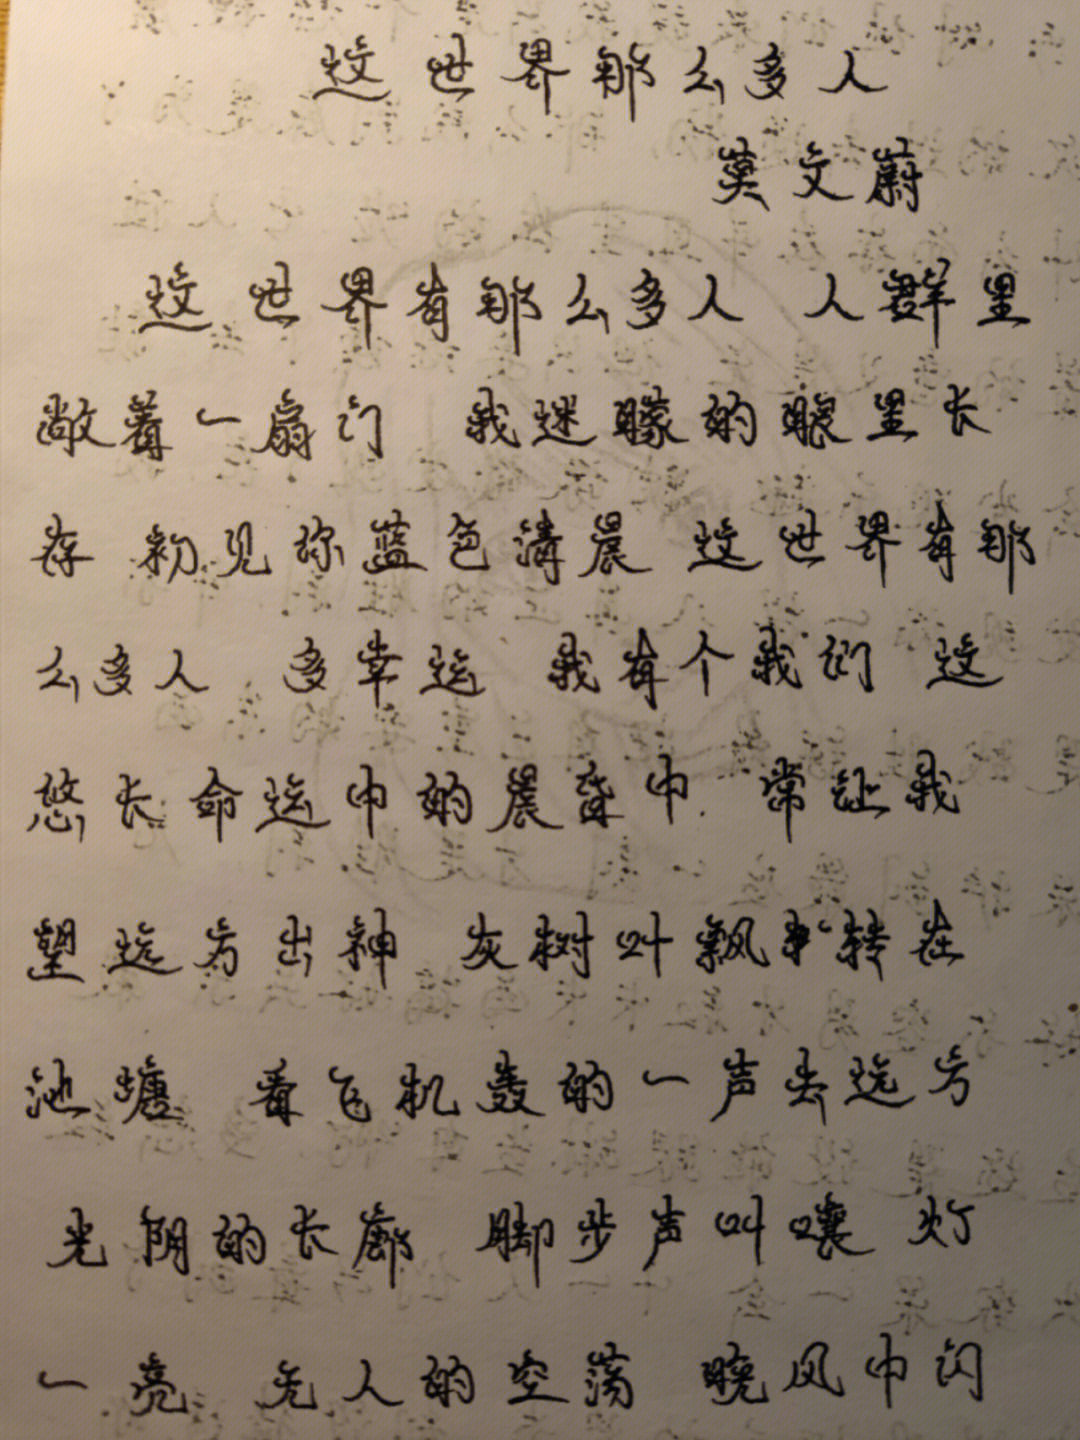 这世界那么多人
莫文蔚
这世界有那么多人 人群里
敞着一扇门 我迷朦的眼里长
存 初见你蓝色清晨 这世界有那
么多人 多幸运 我有个我们 这
悠长命运中的晨昏中 常让我
望远方出神 灰树叶飘转在
池塘 看飞机轰的一声去远方
光阴的长廊 脚步声叫嚷 灯
一亮 无人的空荡 晚风中闪